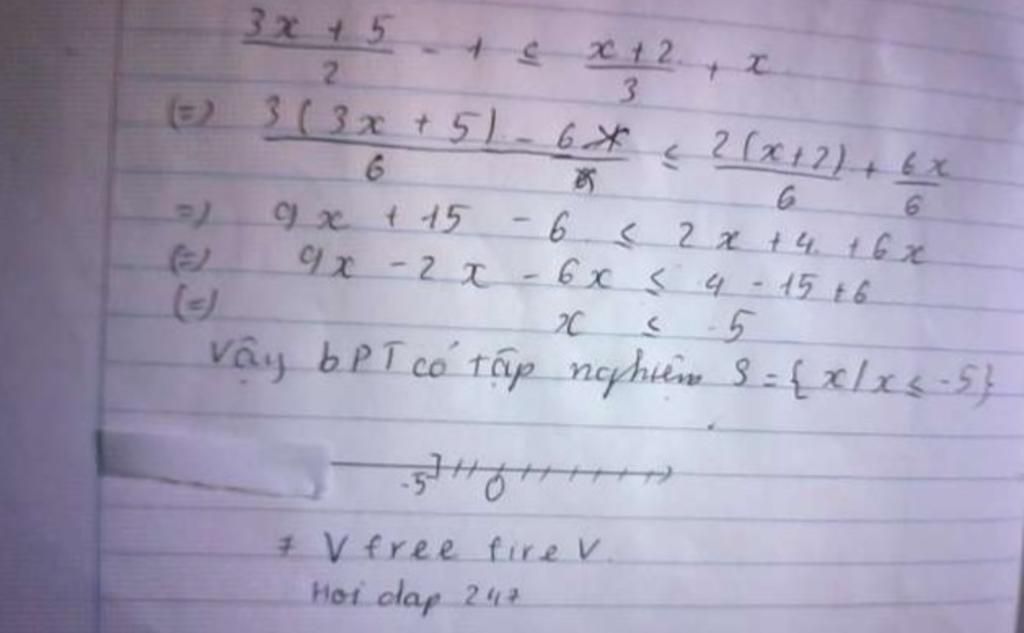 (3x + 5)/2 - 1 ≤ (x+2)/3 + x
(=) 3(3x + 5)/6 - 6/6 ≤ 2(x+2)/6 + 6x/6
=) 9x + 15 - 6 ≤ 2x + 4 + 6x
(=) 9x - 2x - 6x ≤ 4 - 15 + 6
(=) x ≤ -5
Vậy bPT có tập nghiệm S = {x/x ≤ -5}
-5 0
V free fire V
Hoi dap 247